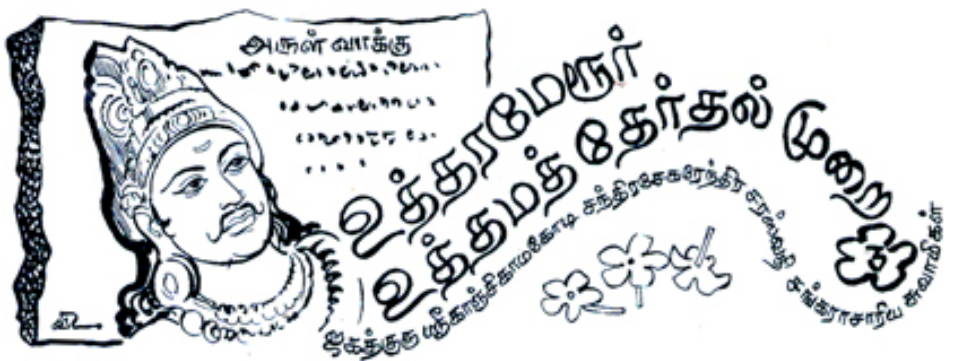 அருள் வாக்கு
உத்தரமேரூர்
உத்தமத் தேர்தல் முறை
ஜகத்குரு ஸ்ரீகாஞ்சிகாமகோடி சந்திரசேகரேந்திர சரஸ்வதி சங்கராசாரிய சுவாமிகள்